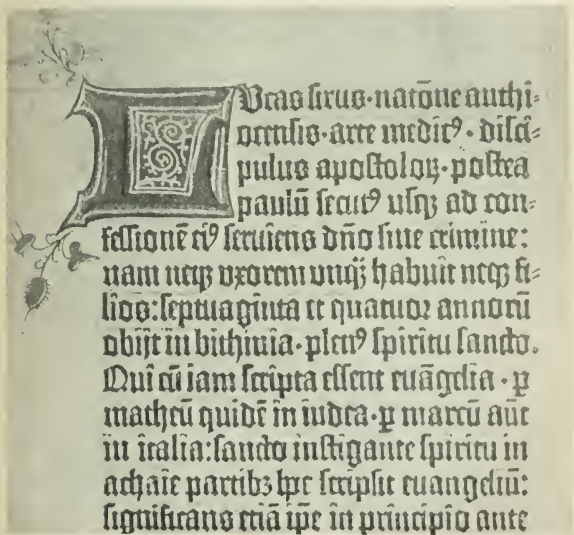 LVcas sirus·natōne anthi⸗
ocensis·arte medicꝰ·disci⸗
pulus apostoloꝝ·postea
paulū secutꝰ usqꝫ ad con⸗
fessionē eiꝰ seruiens dño sine crimine:
nam neqꝫ vxorem vnqꝫ̃ habuit neqꝫ fi⸗
lios:septuaginta et quatuor annorū
obijt in bithinia·plenꝰ spiritu sancto.
Qui cū iam scripta essent euāgelia·ꝑ
matheū quidē in iudea·ꝑ marcū aūt
in italia:sancto instigante spiritu in
achaie partibꝫ hoc scripsit euangeliū:
significans etiā ip̄e in principio ante